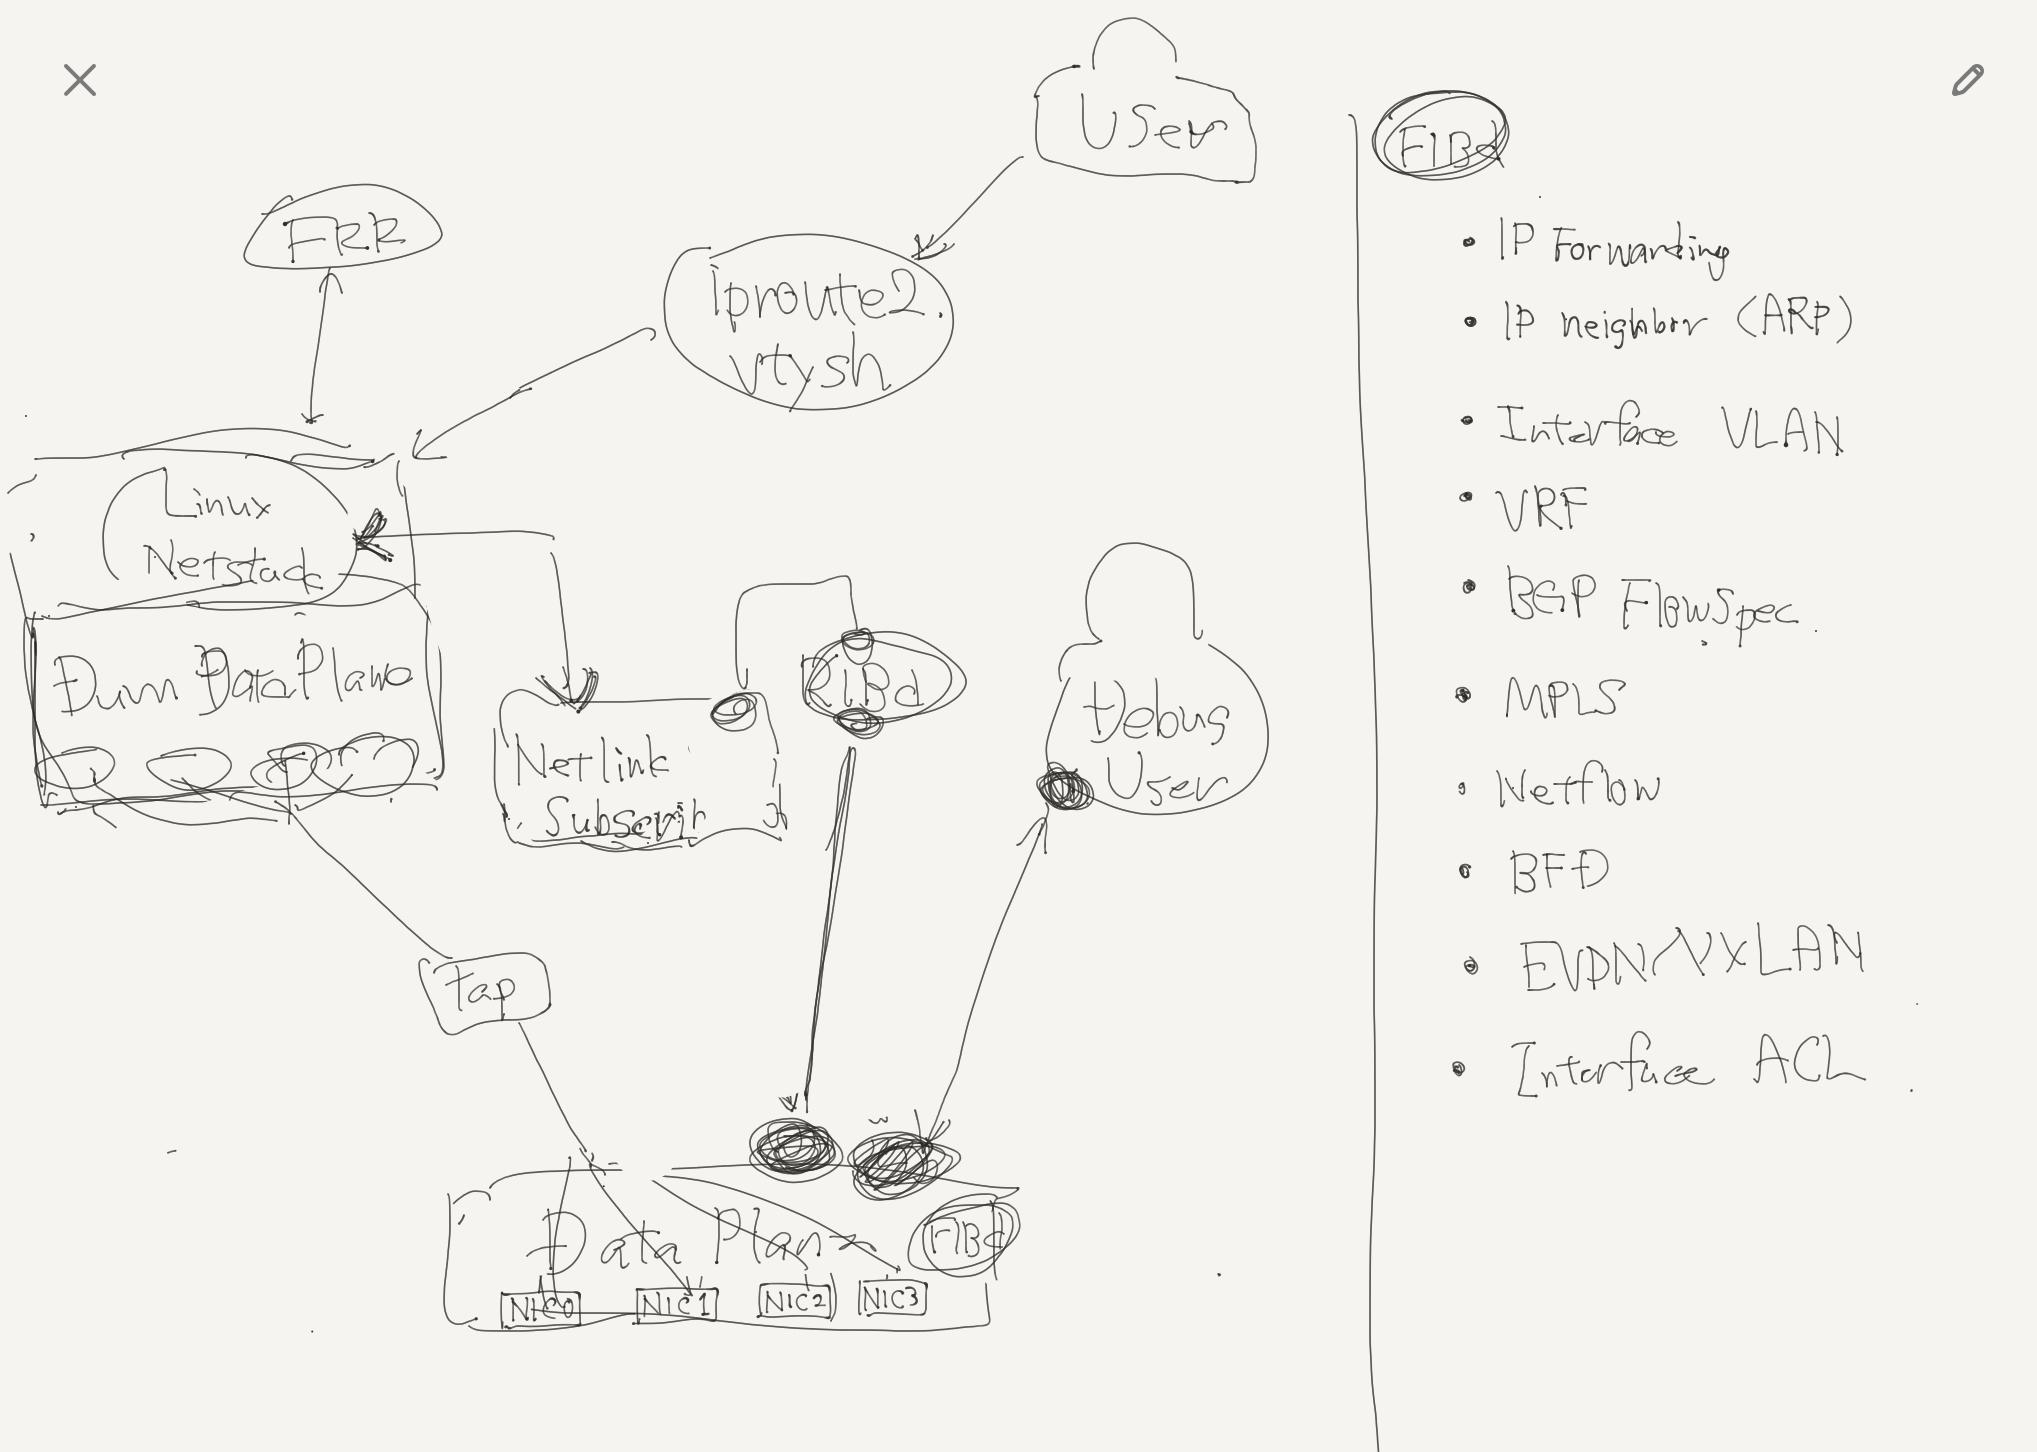 User
FRR
iproute2
vtysh
Linux
Netstack
Dum Data Plane
Netlink
RIBd
Debug
User
tap
Data Plane
FIBd
NIC0
NIC1
NIC2
NIC3
FIBd
• IP Forwarding
• IP neighbor (ARP)
• Interface VLAN
• VRF
• BGP FlowSpec
• MPLS
• Netflow
• BFD
• EVPN/VXLAN
• Interface ACL